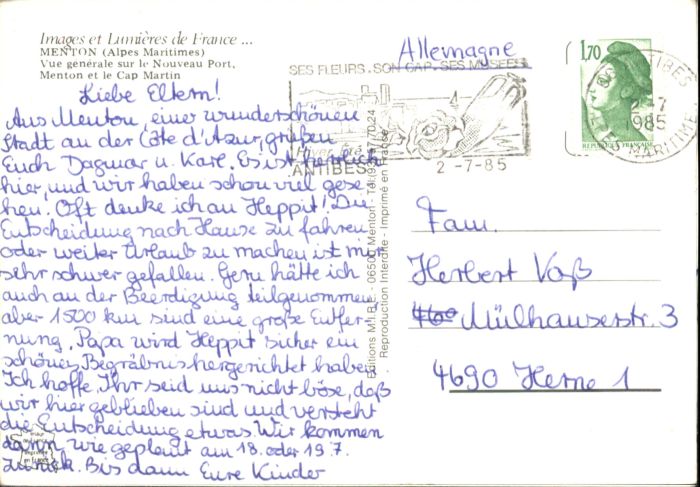 Images et Lumières de France ...
MENTON (Alpes Maritimes)
Vue générale sur le Nouveau Port,
Menton et le Cap Martin
Liebe Eltern!
Aus Menton, einer wunderschönen
Stadt an der Côte d'Azur, grüßen
Euch Dagmar u. Karl. Es ist herrlich
hier, und wir haben schon viel gese-
hen. Oft denke ich an Heppit! Die
Entscheidung nach Hause zu fahren
oder weiter Urlaub zu machen ist mir
sehr schwer gefallen. Gern hätte ich
auch an der Beerdigung teilgenommen
aber 1500 km sind eine große Entfer-
nung. Papa wird Heppit sicher ein
schönes Begräbnis hergerichtet haben.
Ich hoffe, Ihr seid uns nicht böse, daß
wir hier geblieben sind und versteht
die Entscheidung etwas. Wir kommen
dann wie geplant am 18. oder 19.7.
zurück. Bis dann Eure Kinder
Editions M.I.R.E. - 06500 Menton
Reproduction Interdite - Imprimé en France
Allemagne
SES FLEURS. SON CAP. SES MUSEES
ANTIBES
2 -7-85
1,70
REPUBLIQUE FRANÇAISE
ANTIBES
2-7
1985
MARITIMES
Fam.
Herbert Voß
460 Mülhauserstr. 3
4690 Herne 1